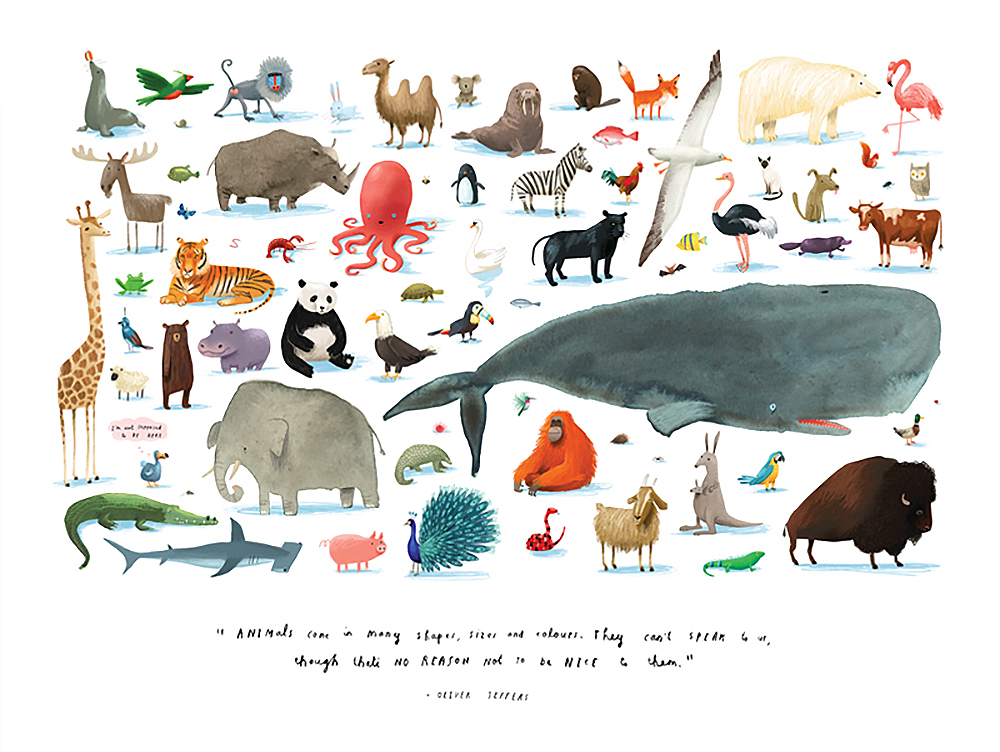 I'm not supposed
to be here
" ANIMALS come in many shapes, sizes and colours. They can't SPEAK to us,
though that's NO REASON not to be NICE to them."
- OLIVER JEFFERS